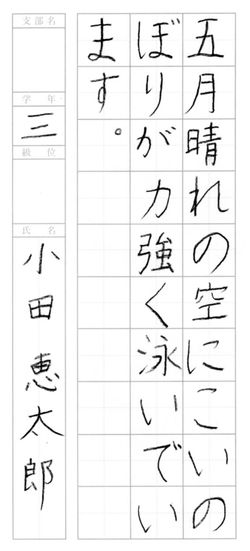 五月晴れの空にこいの
ぼりが力強く泳いでい
ます。
支部名
学年
三
級位
氏名
小田恵太郎